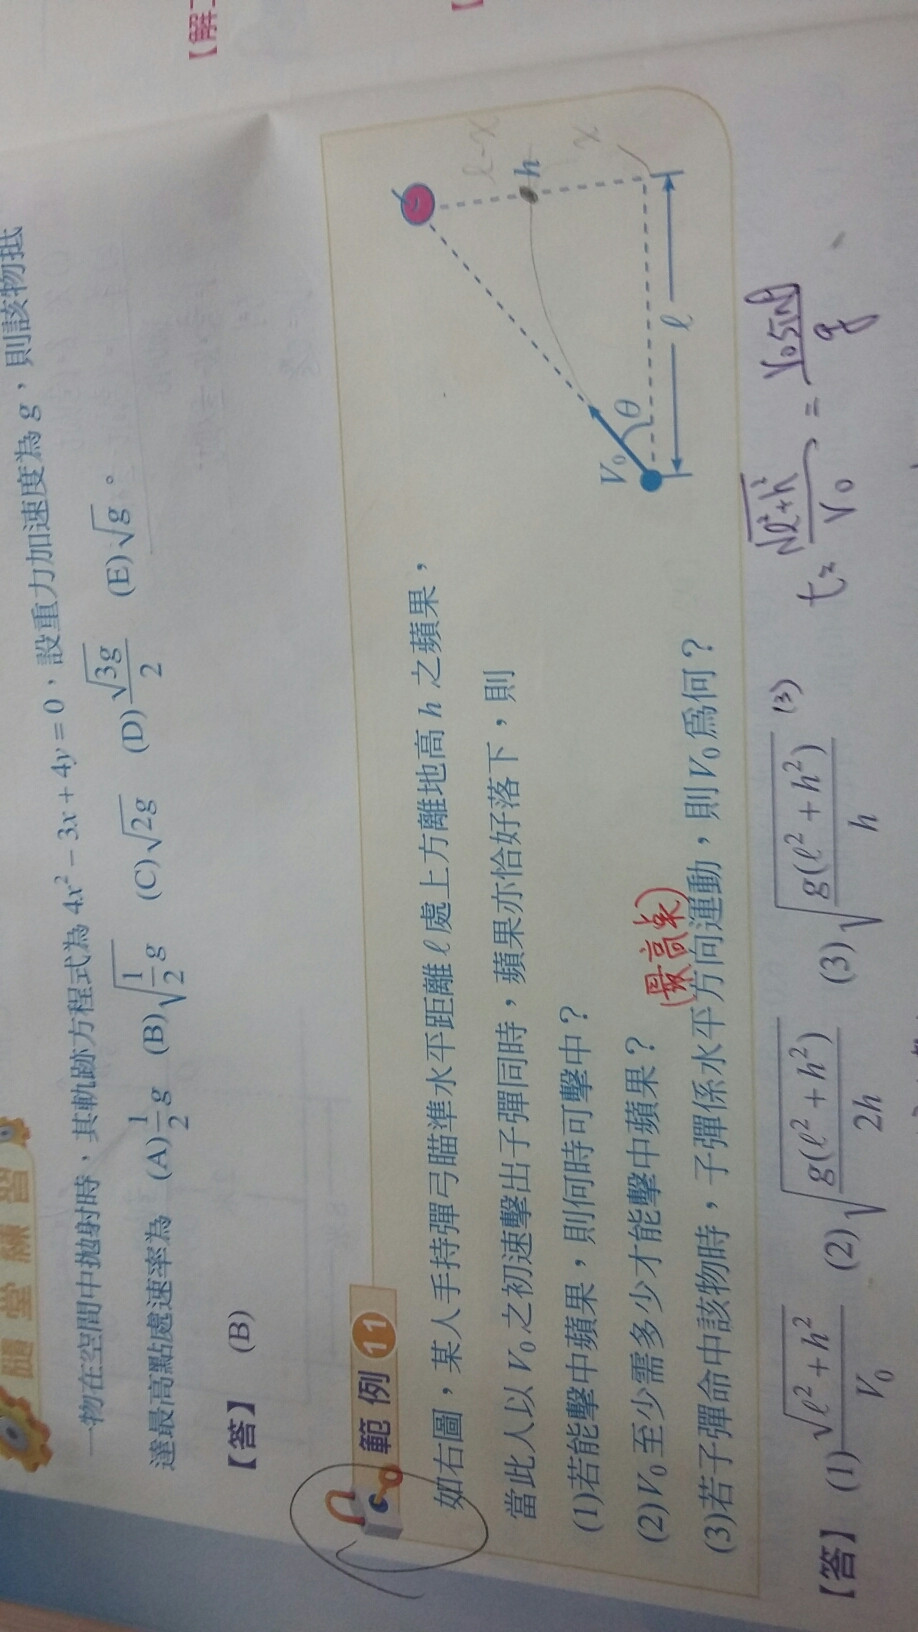 【解
隨堂練習
一物在空間中拋射時，其軌跡方程式為 4x² − 3x + 4y = 0，設重力加速度為 g，則該物抵
達最高點處速率為 (A) 1/2 g (B) √(1/2 g) (C) √(2g) (D) √(3g)/2 (E) √g。
【答】 (B)
範例 11
如右圖，某人手持彈弓瞄準水平距離 ℓ 處上方離地高 h 之蘋果，
當此人以 V₀ 之初速擊出子彈同時，蘋果亦恰好落下，則
(1)若能擊中蘋果，則何時可擊中？
(2)V₀ 至少需多少才能擊中蘋果？
(最高点)
(3)若子彈命中該物時，子彈係水平方向運動，則 V₀ 為何？
V₀
θ
ℓ
h
ℓ-x
x
【答】 (1) √(ℓ² + h²)/V₀ (2) √(g(ℓ² + h²)/2h) (3) √(g(ℓ² + h²)/h)
(3) t = √(ℓ²+h²)/V₀ = V₀sinθ/g